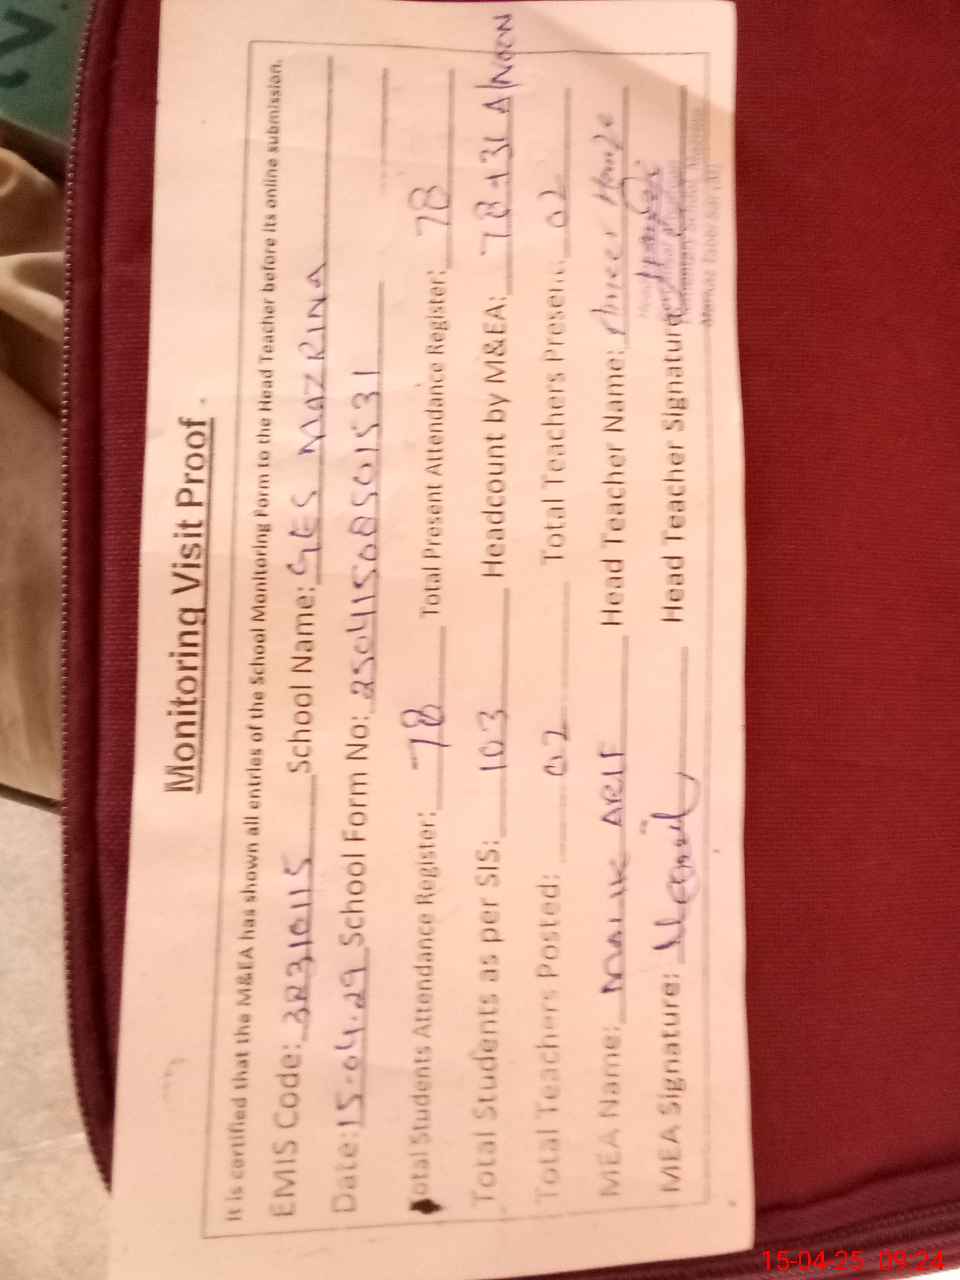 Monitoring Visit Proof .
It is certified that the M&EA has shown all entries of the School Monitoring Form to the Head Teacher before its online submission.
EMIS Code: 32310115 School Name: GES MAZRINA
Date: 15-04-29 School Form No: 25041508501531
Total Students Attendance Register: 78 Total Present Attendance Register: 78
Total Students as per SIS: 103 Headcount by M&EA: 78+31 A/Noon
Total Teachers Posted: 02 Total Teachers Present: 02
MEA Name: MALIK ARIF Head Teacher Name: Ameer Hamza
MEA Signature: Head Teacher Signature
15-04-25 09:24